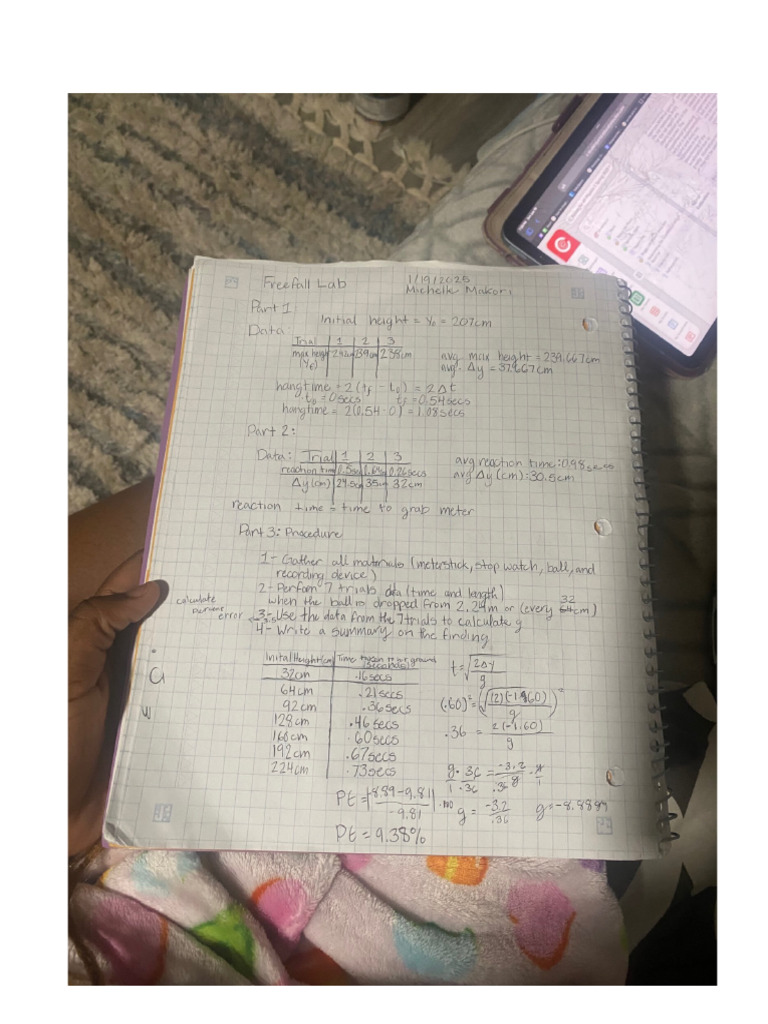 Freefall Lab 1/19/2025
Michelle Makori
Part 1
Initial height = Y₀ = 207cm
Data:
Trial 1 2 3
max height 242cm 239cm 238cm avg. max height = 239.667cm
(Yf) avg. Δy = 37.667cm
hangtime = 2(tf - t₀) = 2Δt
t₀ = 0secs tf = 0.54secs
hangtime = 2(0.54-0) = 1.08secs
Part 2:
Data: Trial 1 2 3 avg reaction time: 0.98secs
reaction time 0.26secs
Δy(cm) 24.5cm 35cm 32cm avg Δy (cm): 30.5cm
reaction time = time to grab meter
Part 3: Procedure
1- Gather all matrials (meterstick, stop watch, ball, and
recording device)
2- Perfom 7 trials data (time and length)
when the ball is dropped from 2.24m or (every 32 cm)
calculate percent error
3- Use the data from the 7 trials to calculate g
4- Write a summary on the finding
Inital Height(cm) Time taken to hit ground (seconds)
32cm .16secs
64cm .21secs
92cm .36secs
128cm .46secs
160cm .60secs
192cm .67secs
224cm .73secs
t = √(2Δy/g)
(.60)² = (√((2)(-1.60)/g))²
.36 = 2(-1.60)/g
g/1 · .36/.36 = -3.2/.36 g · g/1
g = -3.2/.36 g = -8.8889
Pt = |8.89-9.81/-9.81| · 100
Pt = 9.38%